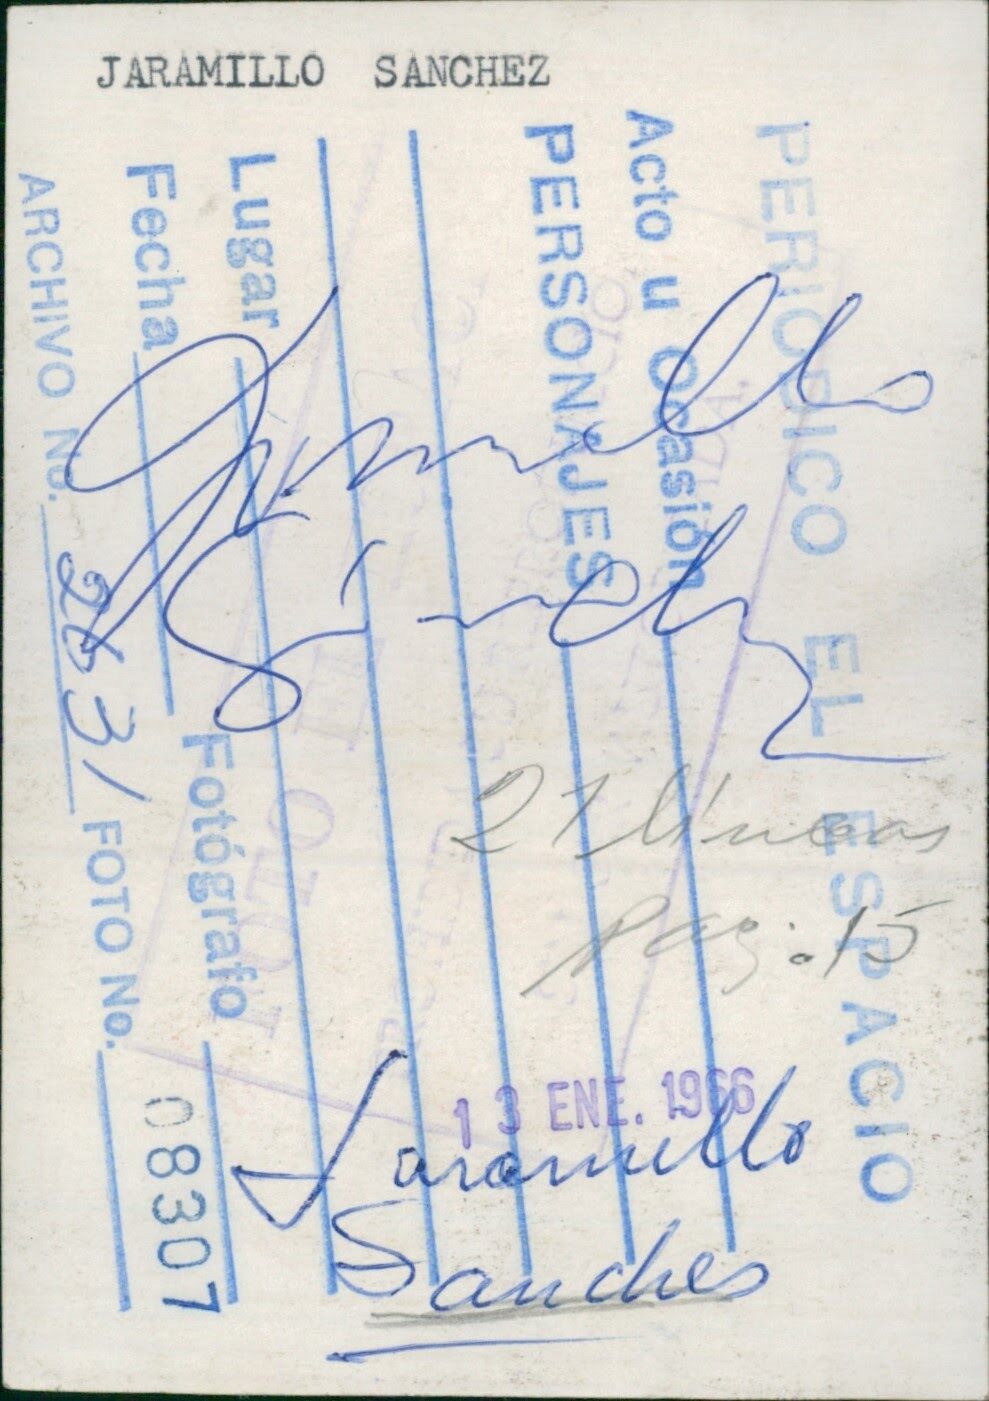 JARAMILLO SANCHEZ
PERIODICO EL ESPACIO
Acto u Ocasión
PERSONAJES
Lugar
Fecha
Fotógrafo
ARCHIVO No. 263/ FOTO No. 08307
Jaramillo
Sánchez
21 líneas
pag. 15
13 ENE. 1966
Jaramillo
Sanches